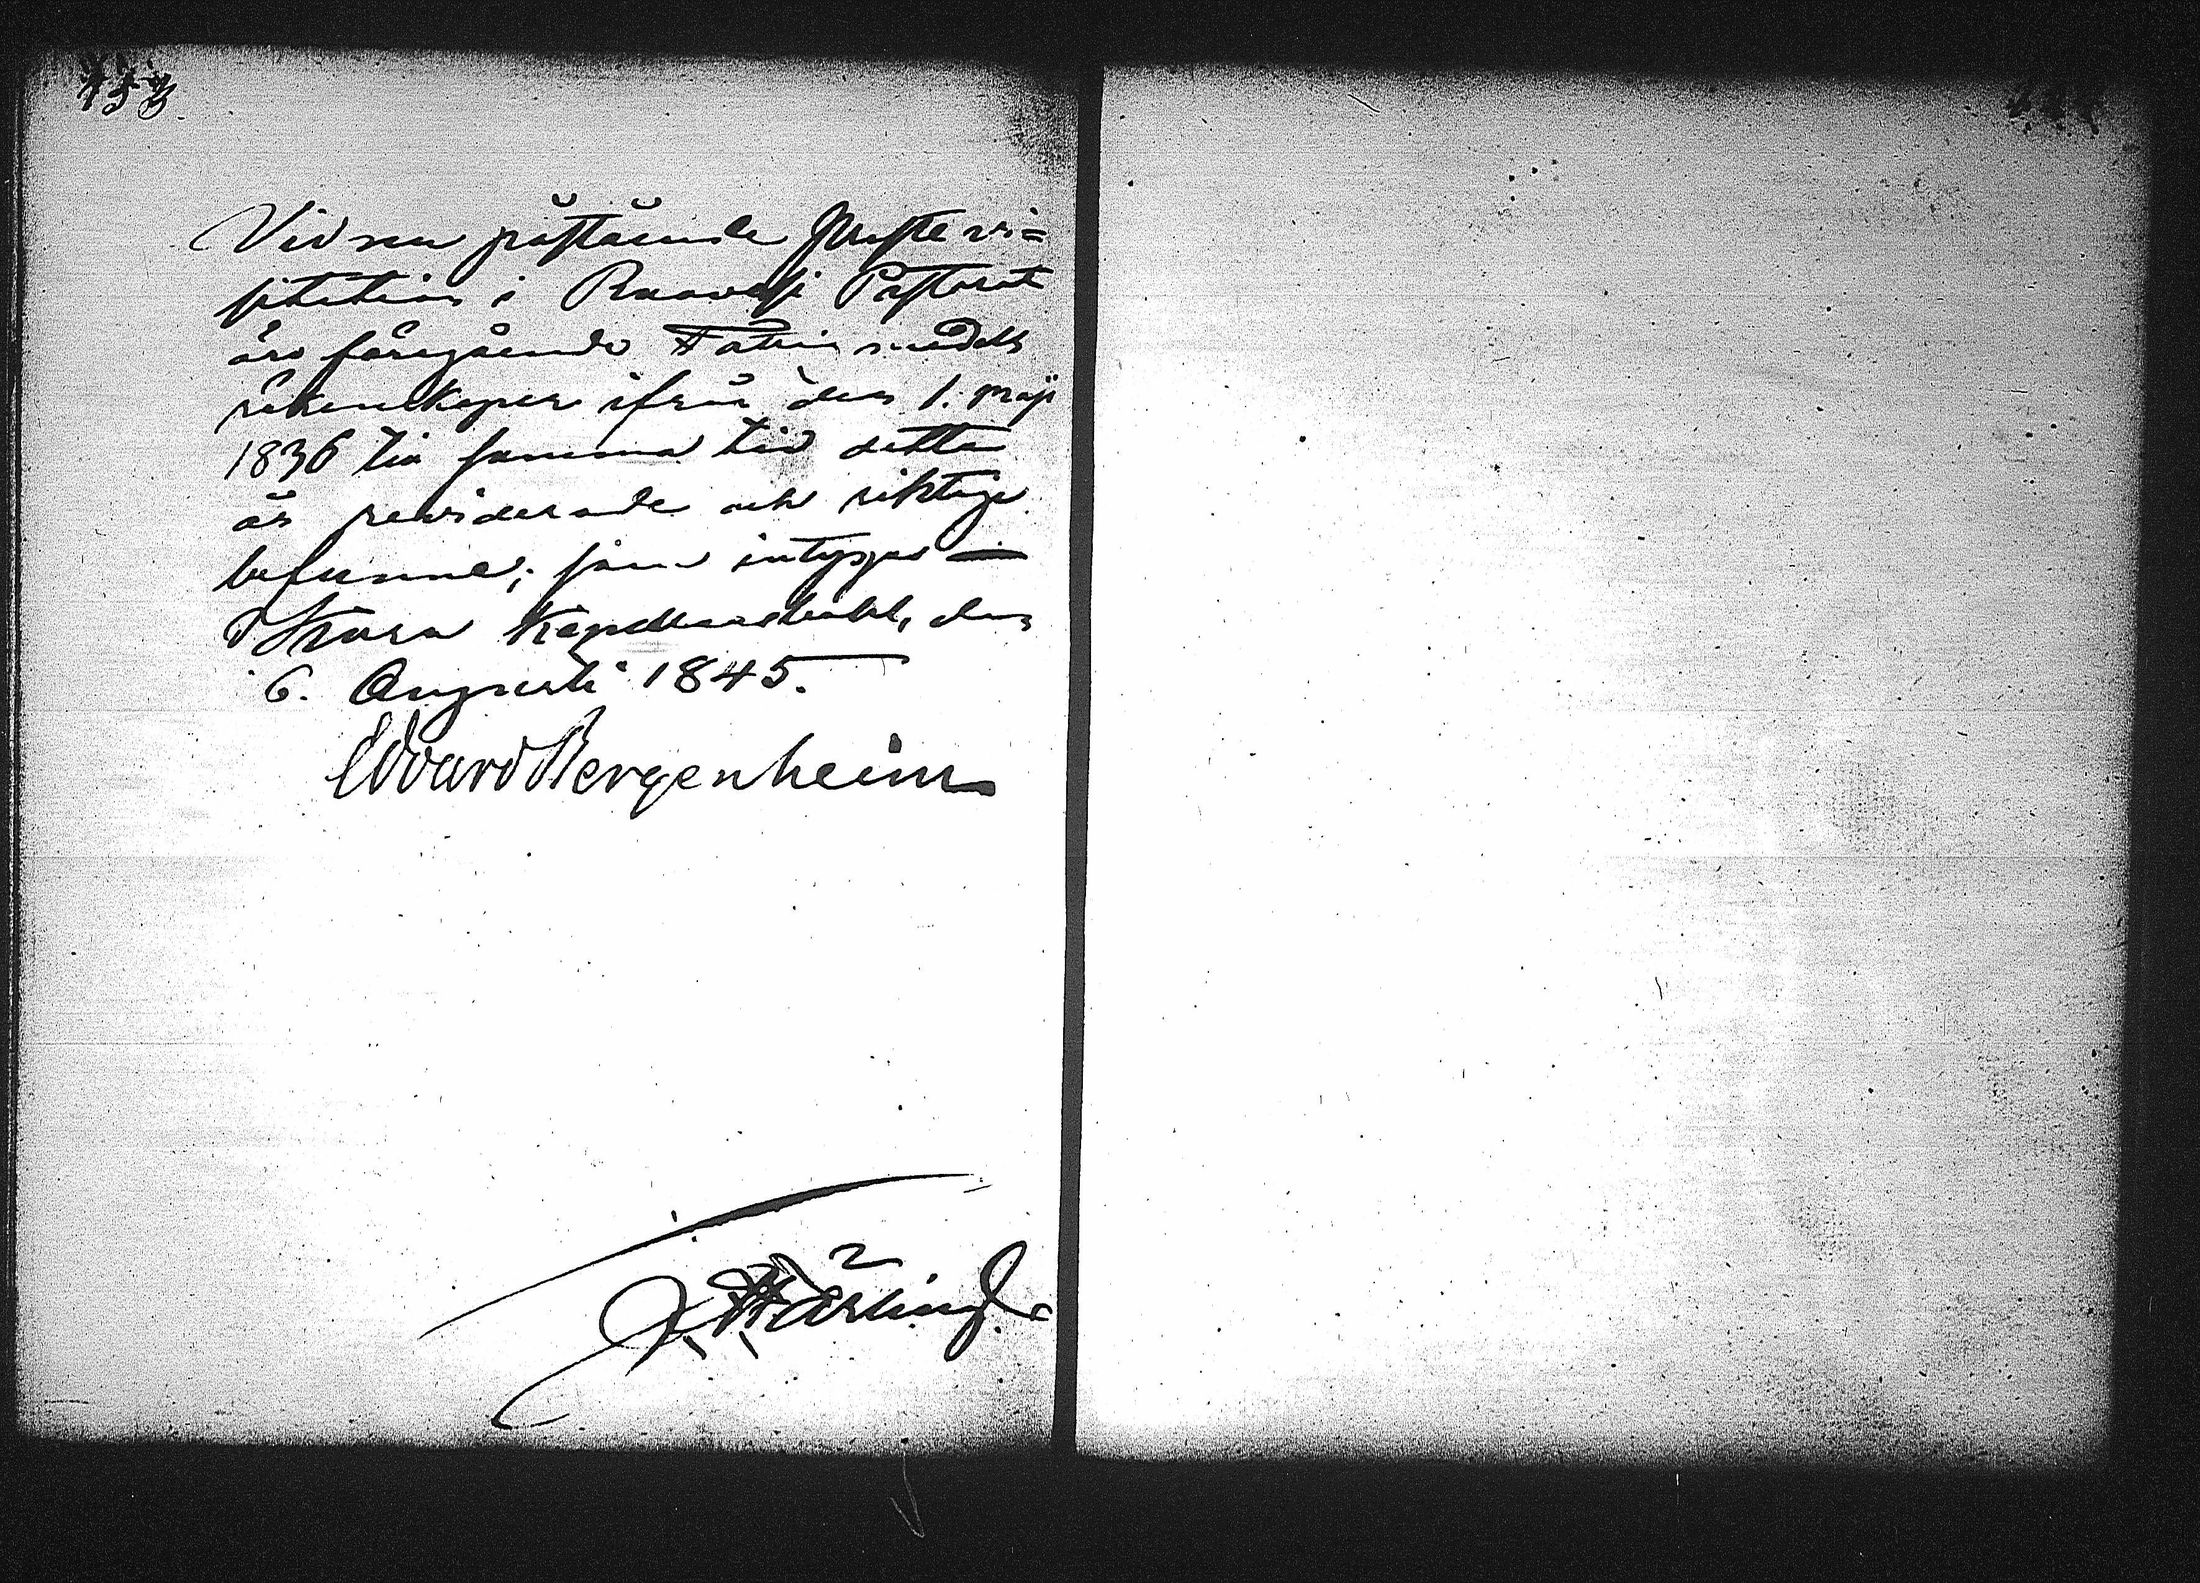 153.
Vid nu påstående Prostevi=
sitation i Ruovesi Pastorat
äro föregående Fattigmedels
räkenskaper ifrån den 1. Maji
1836 till samma tid detta
år reviderade och riktige
befunne; som intygas
Kuru Kapellansbohl, den
6. Augusti 1845.
Edvard Bergenheim